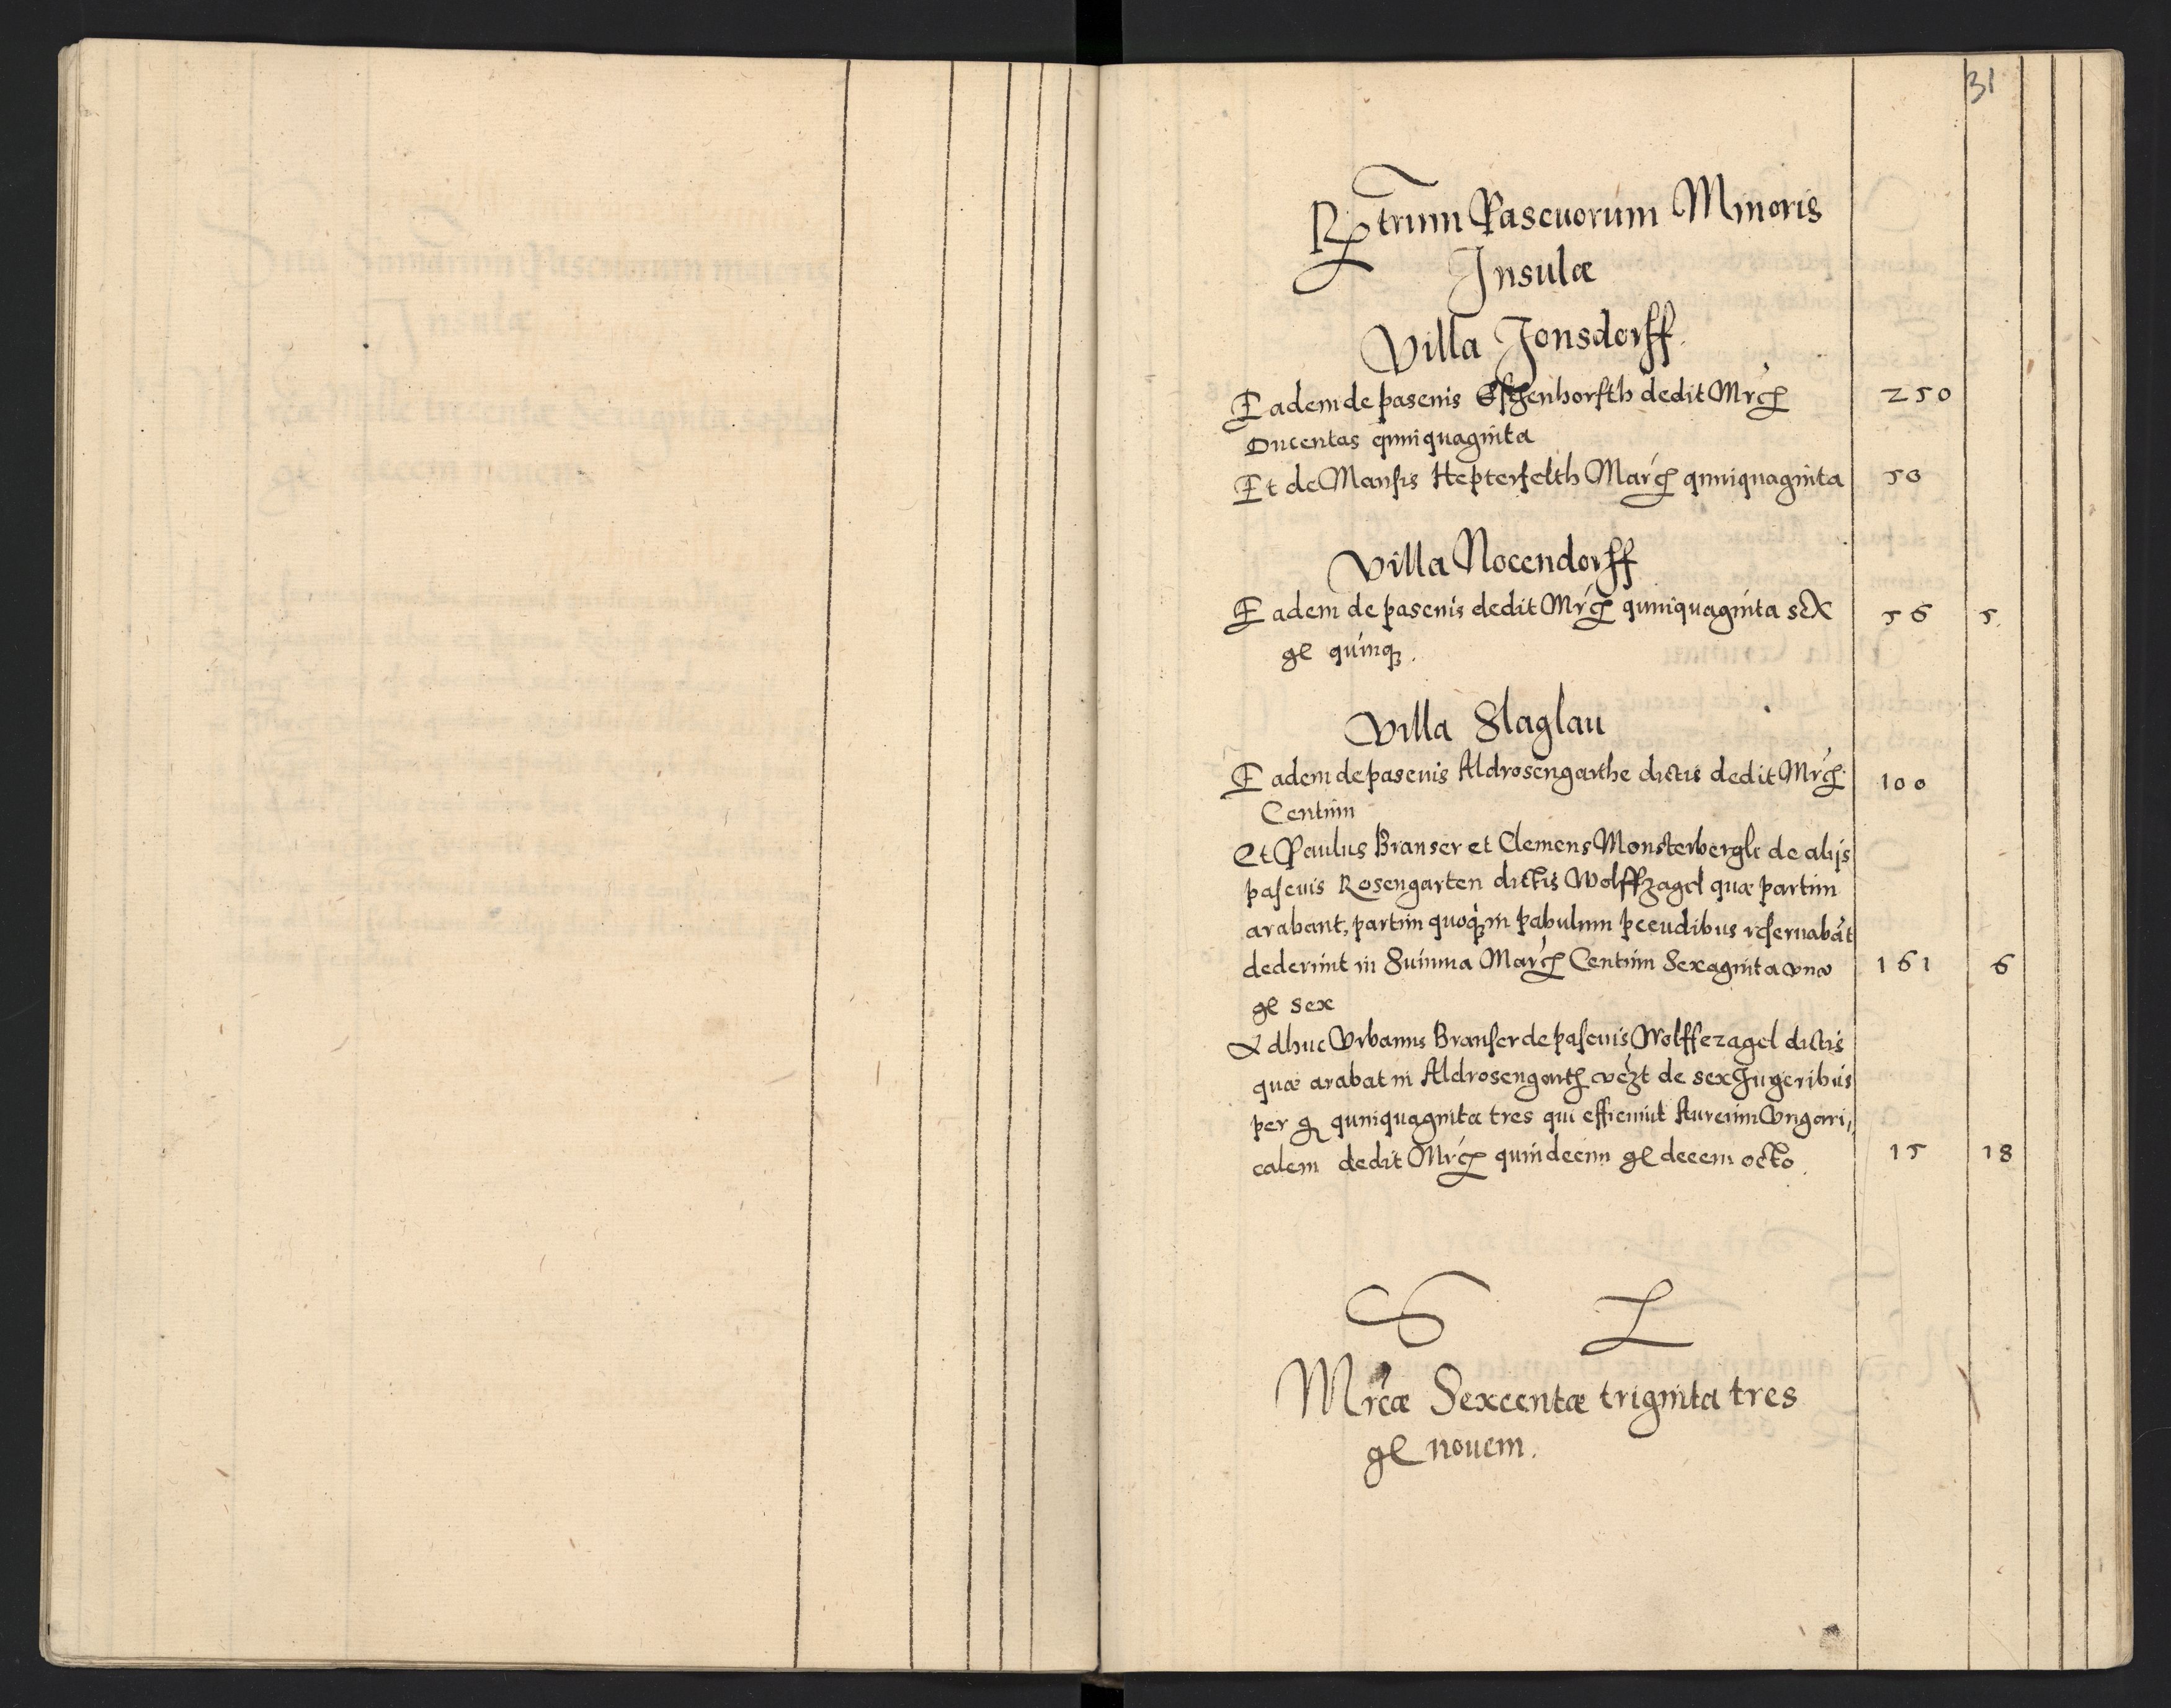 31
Rtrum Pascuorum Minoris
Insulæ
Villa Jonsdorff
Eadem de pascuis Eschenhorsth dedit Mrcas 250
Ducentas quinquaginta
Et de Mansis Hepterfelth Marcas quinquaginta 50
Villa Nocendorff
Eadem de pascuis dedit Mrcas quinquaginta sex 56 5
gl quinque.
Villa Slaglau
Eadem de pascuis Aldrosengarthe dictis dedit Mrcas 100
Centum
Et Paulus Branser et Clemens Monsterbergk de alijs
pascuis Rosengarten dictis Wolffzagel quæ partim
arabant, partim quoque in pabulum pecudibus reseruabāt
dederunt in Summa Marcas Centum Sexaginta vna 161 6
gl sex
Adhuc Vrbanus Branser de pascuis Wolffezagel dictis
quæ arabat in Aldrosengarth vezt de sex Jugeribus
per gr quinquaginta tres qui efficiunt Aureum Vngari,
calem dedit Mrcas quindecim gl decem octo. 15 18
S L
Mrcæ Sexcentæ triginta tres
gl nouem.